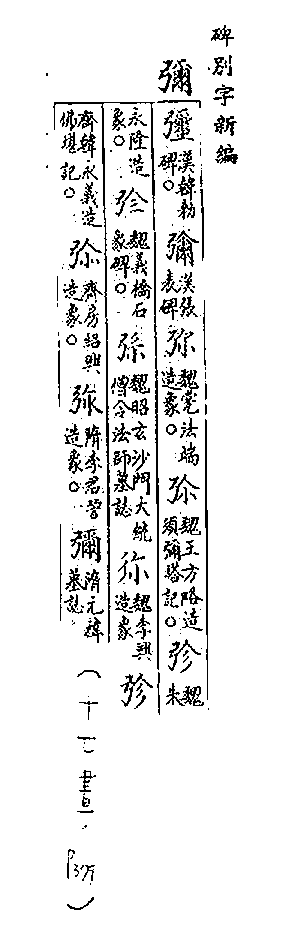 碑別字新編
彌
彌漢韓勅碑。彌漢張表碑。弥魏党法端造象。弥魏王方略造須彌塔記。弥魏朱
永隆造象。弥魏義橋石象碑。弥魏昭玄沙門大統僧令法師墓誌。弥魏李興造象。弥
齊韓永義造佛堪記。弥齊房紹興造象。弥隋李君晉造象。彌隋元褘墓誌。
(十七畫.